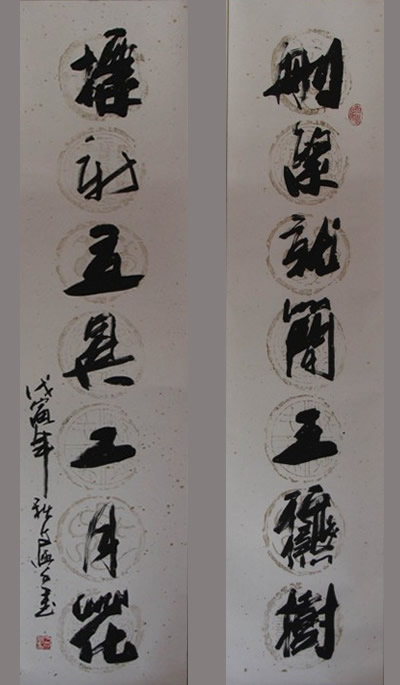 刪繁就簡三秋樹
標新立異二月花
戊寅年